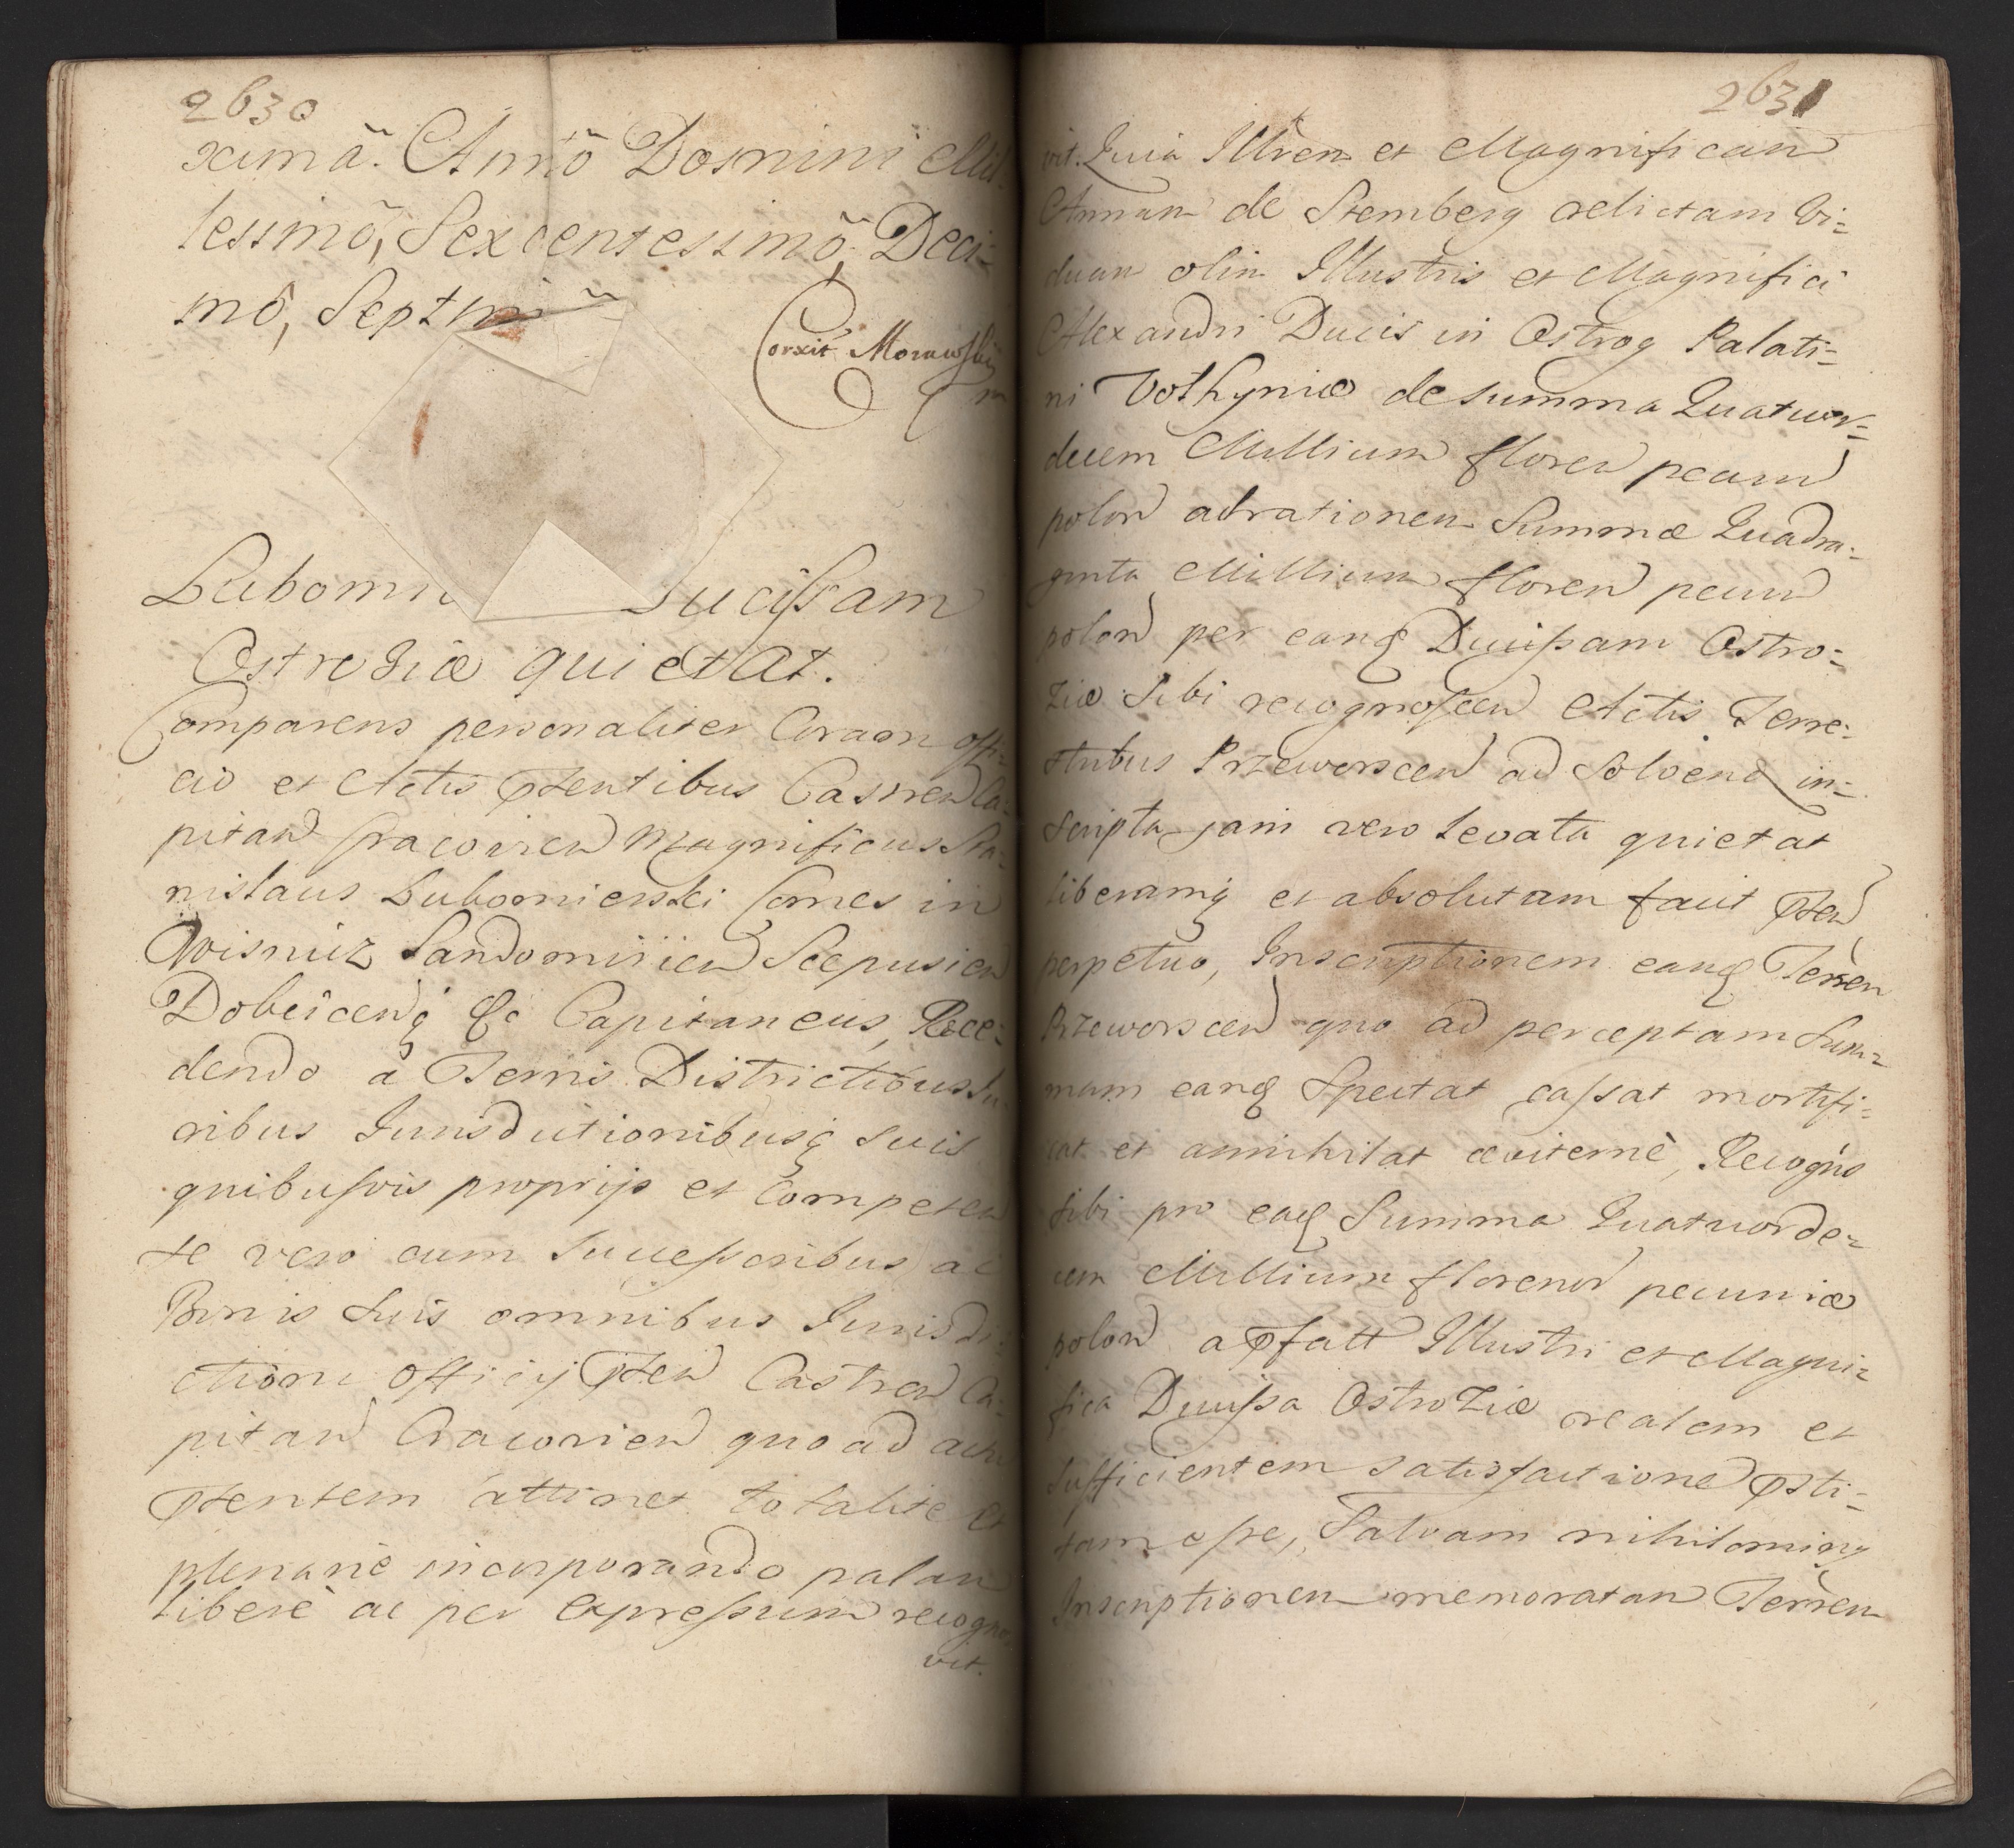 2630
ximâ. Annô Domini Mil-
lesimô, Sexcentesimô, Deci-
mô, Septi
Corxit Morawski
m
Lubomi ucissam
Ostrogiæ quietat.
Comparens personaliter Coram offi-
cio et Actis Pntentibus Castren Ca-
pitan Cracovien Magnificus Sta-
nislaus Lubomierski Comes in
Wisnicz Sandomirien Scepusien
Dobcicenq & Capitaneus, Rece-
dendo â Terris Districtibus Ju-
ribus Jurisdictionibusq suis
quibusvis proprijs et Competen
te vero cum Successoribus ac
Bonis Suis omnibus Jurisdi-
ctioni Officij Pnten Castren Ca-
pitan Cracovien quo ad actu
Pntentem attinet totalite et
plenariè incorporando palam
liberè ac per Expressum recogno-
vit.
2631
vit. Quia Illrem et Magnificam
Annam de Stemberg relictam Vi-
duam olim Illustris et Magnifici
Alexandri Ducis in Ostrog Palati-
ni Volhyniæ de summa Quatuor-
decem Millium floren pecun
polon ad rationem Summæ Quadra-
ginta Millium floren pecun
polon per eand Ducissam Ostro-
ziæ Sibi recognoscen Actis Terre-
stribus Przeworscen ad Solvend in-
scripta jam vero levata quietat
liberamq et absolutam facit Pnten
perpetuo, Inscriptionem eand Terren
Przeworscen quo ad perceptam Sum-
mam eand Spectat cassat mortifi-
cat et annihilat æviternè, Recogno
sibi pro ead Summa Quatuorde-
cem Millium florenor pecuniæ
polon a Pfatt Illustri et Magni-
fica Ducissa Ostroziæ realem et
sufficientem satisfactione Psti-
tam esse, Salvam nihilominq
Inscriptionem memoratam Terren